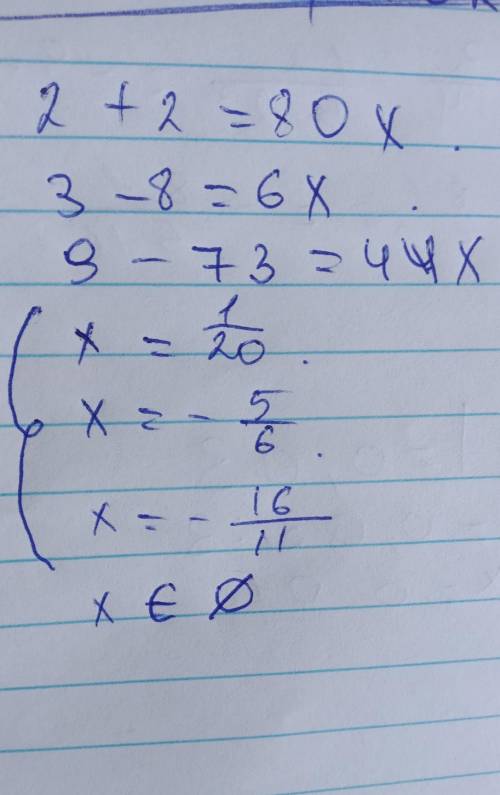 2 + 2 = 80x.
3 - 8 = 6x.
9 - 73 = 44x
x = 1/20.
x = - 5/6.
x = - 16/11
x ∈ ∅